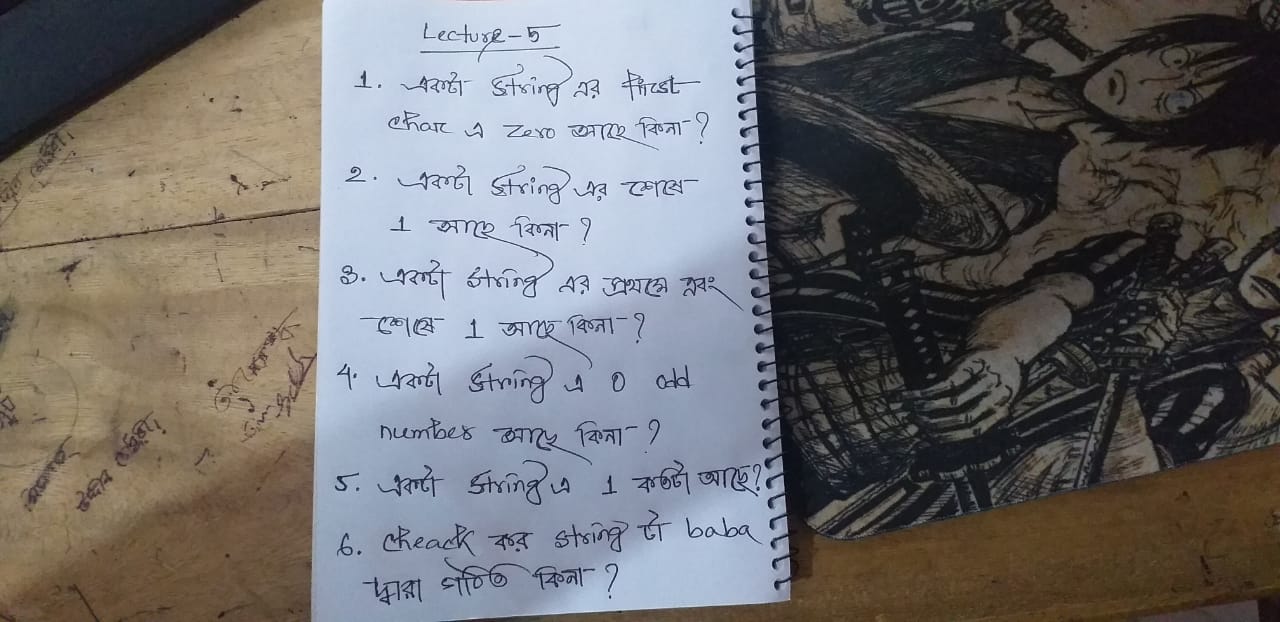 Lecture-5
1. একটা string এর first
char এ zero আছে কিনা?
2. একটা string এর শেষে
1 আছে কিনা?
3. একটা string এর প্রথমে এবং
শেষে 1 আছে কিনা?
4. একটা string এ 0 odd
number আছে কিনা?
5. একটা string এ 1 কতটা আছে?
6. cheack কর string টা baba
দ্বারা গঠিত কিনা?